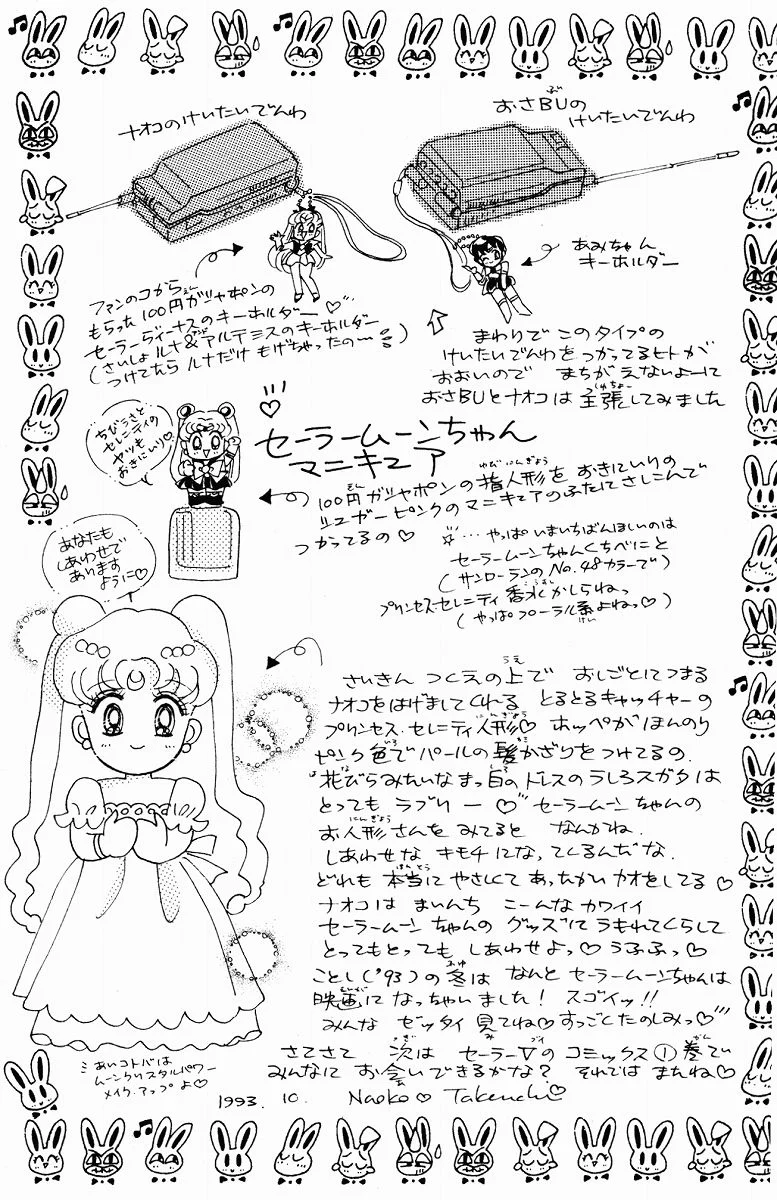 ナオコのけいたいでんわ
おさBUの
けいたいでんわ
あみちゃん
キーホルダー
ファンのコから
もらった100円ガシャポンの
セーラーヴィーナスのキーホルダー♡
(さいしょ ルナ&アルテミスのキーホルダー
つけてたら ルナだけ もげちゃったの〜)
まわりで このタイプの
けいたいでんわを つかってるヒトが
おおいので まちがえないよーに
おさBUとナオコは 主張してみました
ちびうさと
セレニティの
ヤツも
おきにいり♡
セーラームーンちゃん
マニキュア
100円ガシャポンの 指人形を おきにいりの
シュガーピンクのマニキュアの ふたに さしこんで
つかってるの♡
☆…やっぱ いまいちばんほしいのは
セーラームーンちゃんくちべにと
(サンローランのNo.48カラーで)
プリンセス・セレニティ 香水かしらねっ
(やっぱフローラル系よねっ♡)
あなたも
しあわせで
あります
ように♡
さいきん つくえの上で おしごとにつまる
ナオコをはげましてくれる とるとるキャッチャーの
プリンセス・セレニティ人形♡ ホッペがほんのり
ピンク色でパールの髪かざりをつけてるの.
花びらみたいな まっ白の ドレスのうしろスガタは
とっても ラブリー♡ セーラームーンちゃんの
お人形さんを みてると なんかね.
しあわせな キモチになってくるんだな.
どれも 本当に やさしくて あったかい カオをしてる♡
ナオコは まいんち こーんな カワイイ
セーラームーンちゃんの グッズに うもれてくらして
とってもとっても しあわせよっ♡ うふふっ♡
ことし('93)の冬は なんと セーラームーンちゃんは
映画に なっちゃいました! スゴイッ!!
みんな ゼッタイ 見てね♡すっごくたのしみっ♡
さてさて 次は セーラーVの コミックス①巻で
みんなに お会いできるかな? それでは またね♡
あいコトバは
ムーンクリスタルパワー
メイク・アップよ♡
1993. 10. Naoko♡Takeuchi♡